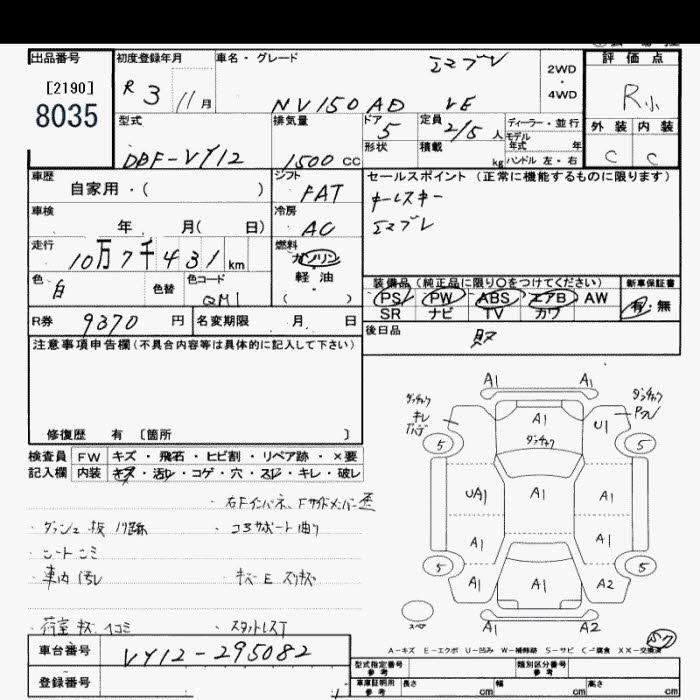 出品番号 初度登録年月 車名・グレード 評価点
[2190] R 3 11月 エマブレ 2WD・4WD R小
8035 NV150AD VE
型式 排気量 ドア 5 定員 2/5人 ディーラー・並行 外装 内装
形状 積載 kg モデル年式 年 ハンドル 左・右
DBF-VY12 1500cc C C
車歴 シフト セールスポイント(正常に機能するものに限ります)
自家用・( ) FAT キーレスキー
車検 冷房 エマブレ
年 月( 日) AC
走行 燃料
10万7千431km ガソリン
色 白 色替 色コード QM1 軽油 ( )
装備品(純正品に限り○をつけてください) 新車保証書
PS PW ABS エアB AW 有・無
SR ナビ TV カワ
R券 9370円 名変期限 月 日 後日品
注意事項申告欄(不具合内容等は具体的に記入して下さい)
修復歴 有 〔箇所 〕
検査員記入欄 FW キズ・飛石・ヒビ割・リペア跡・×要
内装 キズ・汚レ・コゲ・穴・スレ・キレ・破レ
右Fインパネ、Fサイドメンバー歪
コアサポート曲り
車内汚レ
荷室キズ、ヘコミ スタットレスT
A1 A1
A1
U1
5 5
UA1 A1 A1
A1 A1
5 5
A1 A1 A2
A1 A2
スペア
A-キズ E-エクボ U-凹み W-補修跡 S-サビ C-腐食 XX-交換済
車台番号 VY12-295082
登録番号
型式指定番号 参考 類別区分番号 参考
車庫証明用 参考 長さ cm 幅 cm 高さ cm